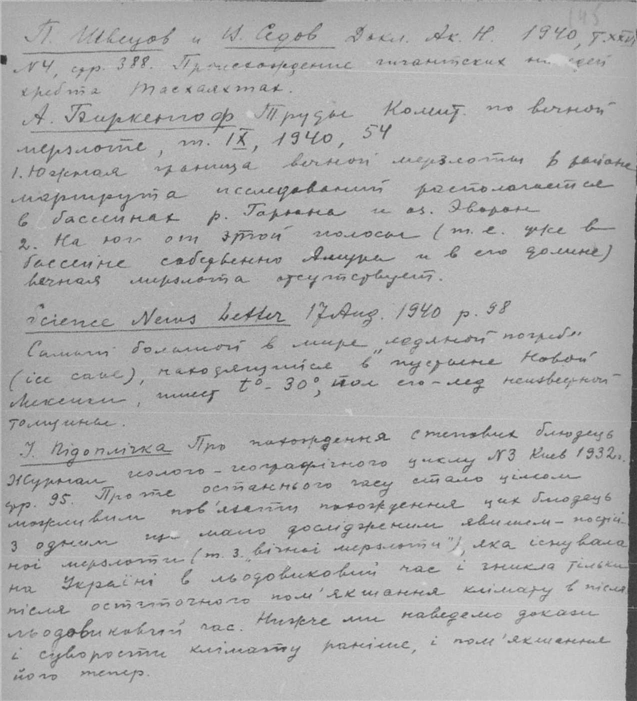 145
П. Швецов и В. Седов Докл. Ак. Н. 1940, т. XXVI
№4, стр. 388. Происхождение гигантских наледей
хребта Тас-Хаяхтах.
А. Биркенгоф Труды Комит. по вечной
мерзлоте, т. IX, 1940, 54
1. Южная граница вечной мерзлоты в районе
маршрута исследований располагается
в бассейнах р. Горюна и оз. Эворон
2. На юг от этой полосы (т.е. уже в
бассейне собственно Амура и в его долине)
вечная мерзлота отсутствует.
Science News Letter 17 Aug. 1940 p. 98
Самый большой в мире „ледяной погреб"
(ice cave), находящийся в пустыне Новой
Мексики, имеет t° - 30°, пол его - лед неизвестной
толщины.
I. Підоплічка Про походження степових блюдець
Журнал геолого-географічного циклу №3 Киев 1932 г.
стр. 95. Проте останнього часу стало цілком
можливим пов'язати походження цих блюдець
з одним ще мало дослідженим явищем - постій-
ної мерзлоти (т. з. „вічної мерзлоти"), яка існувала
на Україні в льодовиковий час і зникла тільки
після остаточного пом'якшання клімату в після
льодовиковий час. Нижче ми наведемо докази
і суворости клімату раніше, і пом'якшення
його тепер.